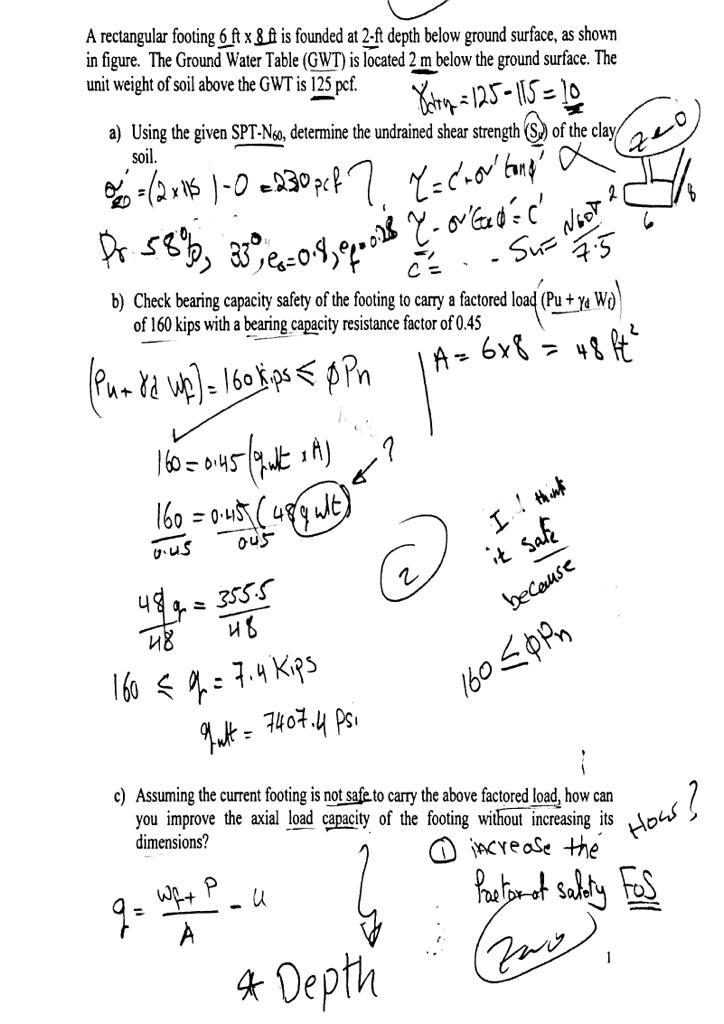 A rectangular footing 6 ft x 8 ft is founded at 2-ft depth below ground surface, as shown
in figure. The Ground Water Table (GWT) is located 2 m below the ground surface. The
unit weight of soil above the GWT is 125 pcf.
γdry = 125 - 115 = 10
a) Using the given SPT-N60, determine the undrained shear strength (Su) of the clay
soil.
zero
σ'zD = (2 x 115) - 0 = 230 pcf ?
τ = c' + σ' tanφ'
2
8
6
Dr 58%, 33°, e0=0.9, ef=0.28
τ - σ' tanφ' = c'
c' =
Su = N60T
7.5
b) Check bearing capacity safety of the footing to carry a factored load (Pu + γd Wf)
of 160 kips with a bearing capacity resistance factor of 0.45
A = 6x8 = 48 ft²
(Pu + γd Wf) = 160 kips ≤ φPn
160 = 0.45 (qult x A)
?
160 = 0.45 (48 qult)
0.45 0.45
2
I think
it safe
because
160 ≤ φPn
48 q = 355.5
48 48
160 ≤ q = 7.4 Kips
qult = 7407.4 Psi
c) Assuming the current footing is not safe to carry the above factored load, how can
you improve the axial load capacity of the footing without increasing its
dimensions?
How?
① increase the
Factor of safety FoS
q = Wf + P - u
A
zero
* Depth
1